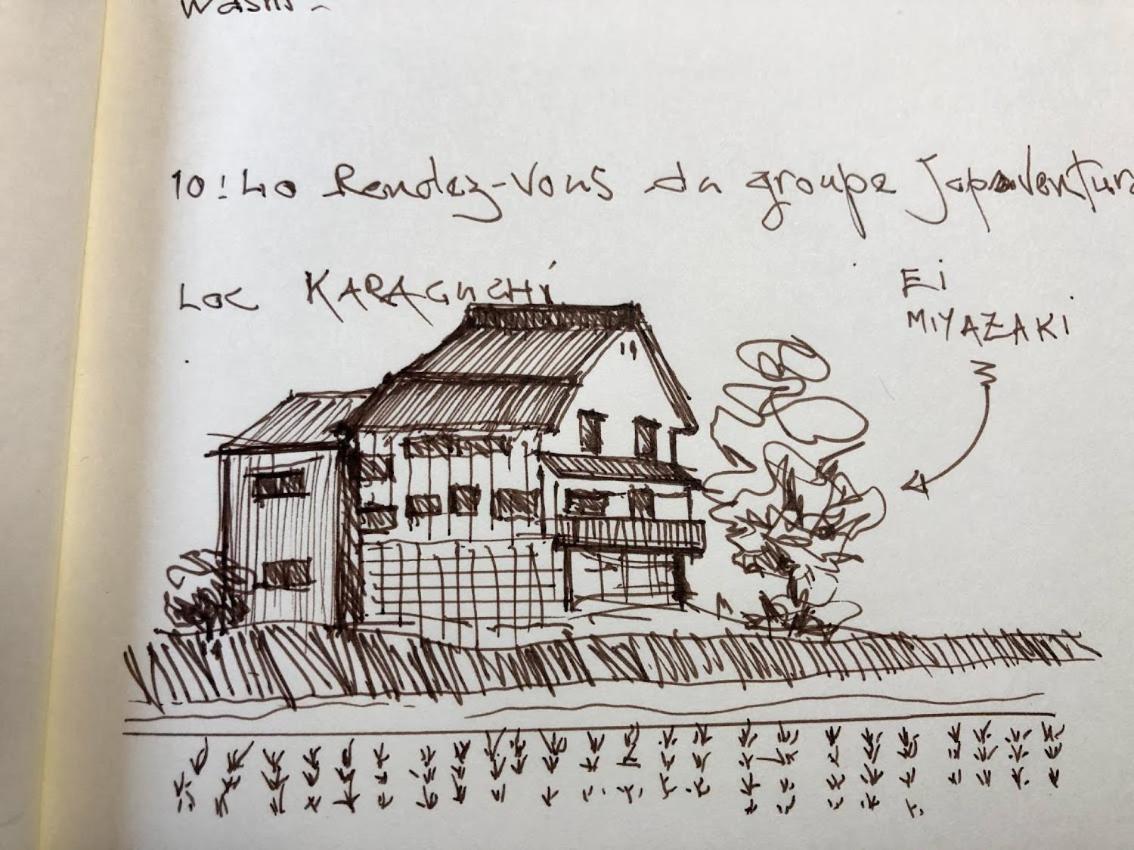 Washi
10:40 Rendez-vous du groupe Japaventura
Loc KARAGUCHI
Ei
MIYAZAKI